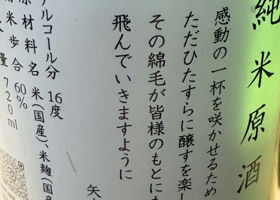 純米原酒
感動の一杯を咲かせるため
ただひたすらに醸すを楽し
その綿毛が皆様のもとにも
飛んでいきますように
矢
アルコール分 16度
原材料名 米(国産)、米麹(国産
精米歩合 60%
量 720ml